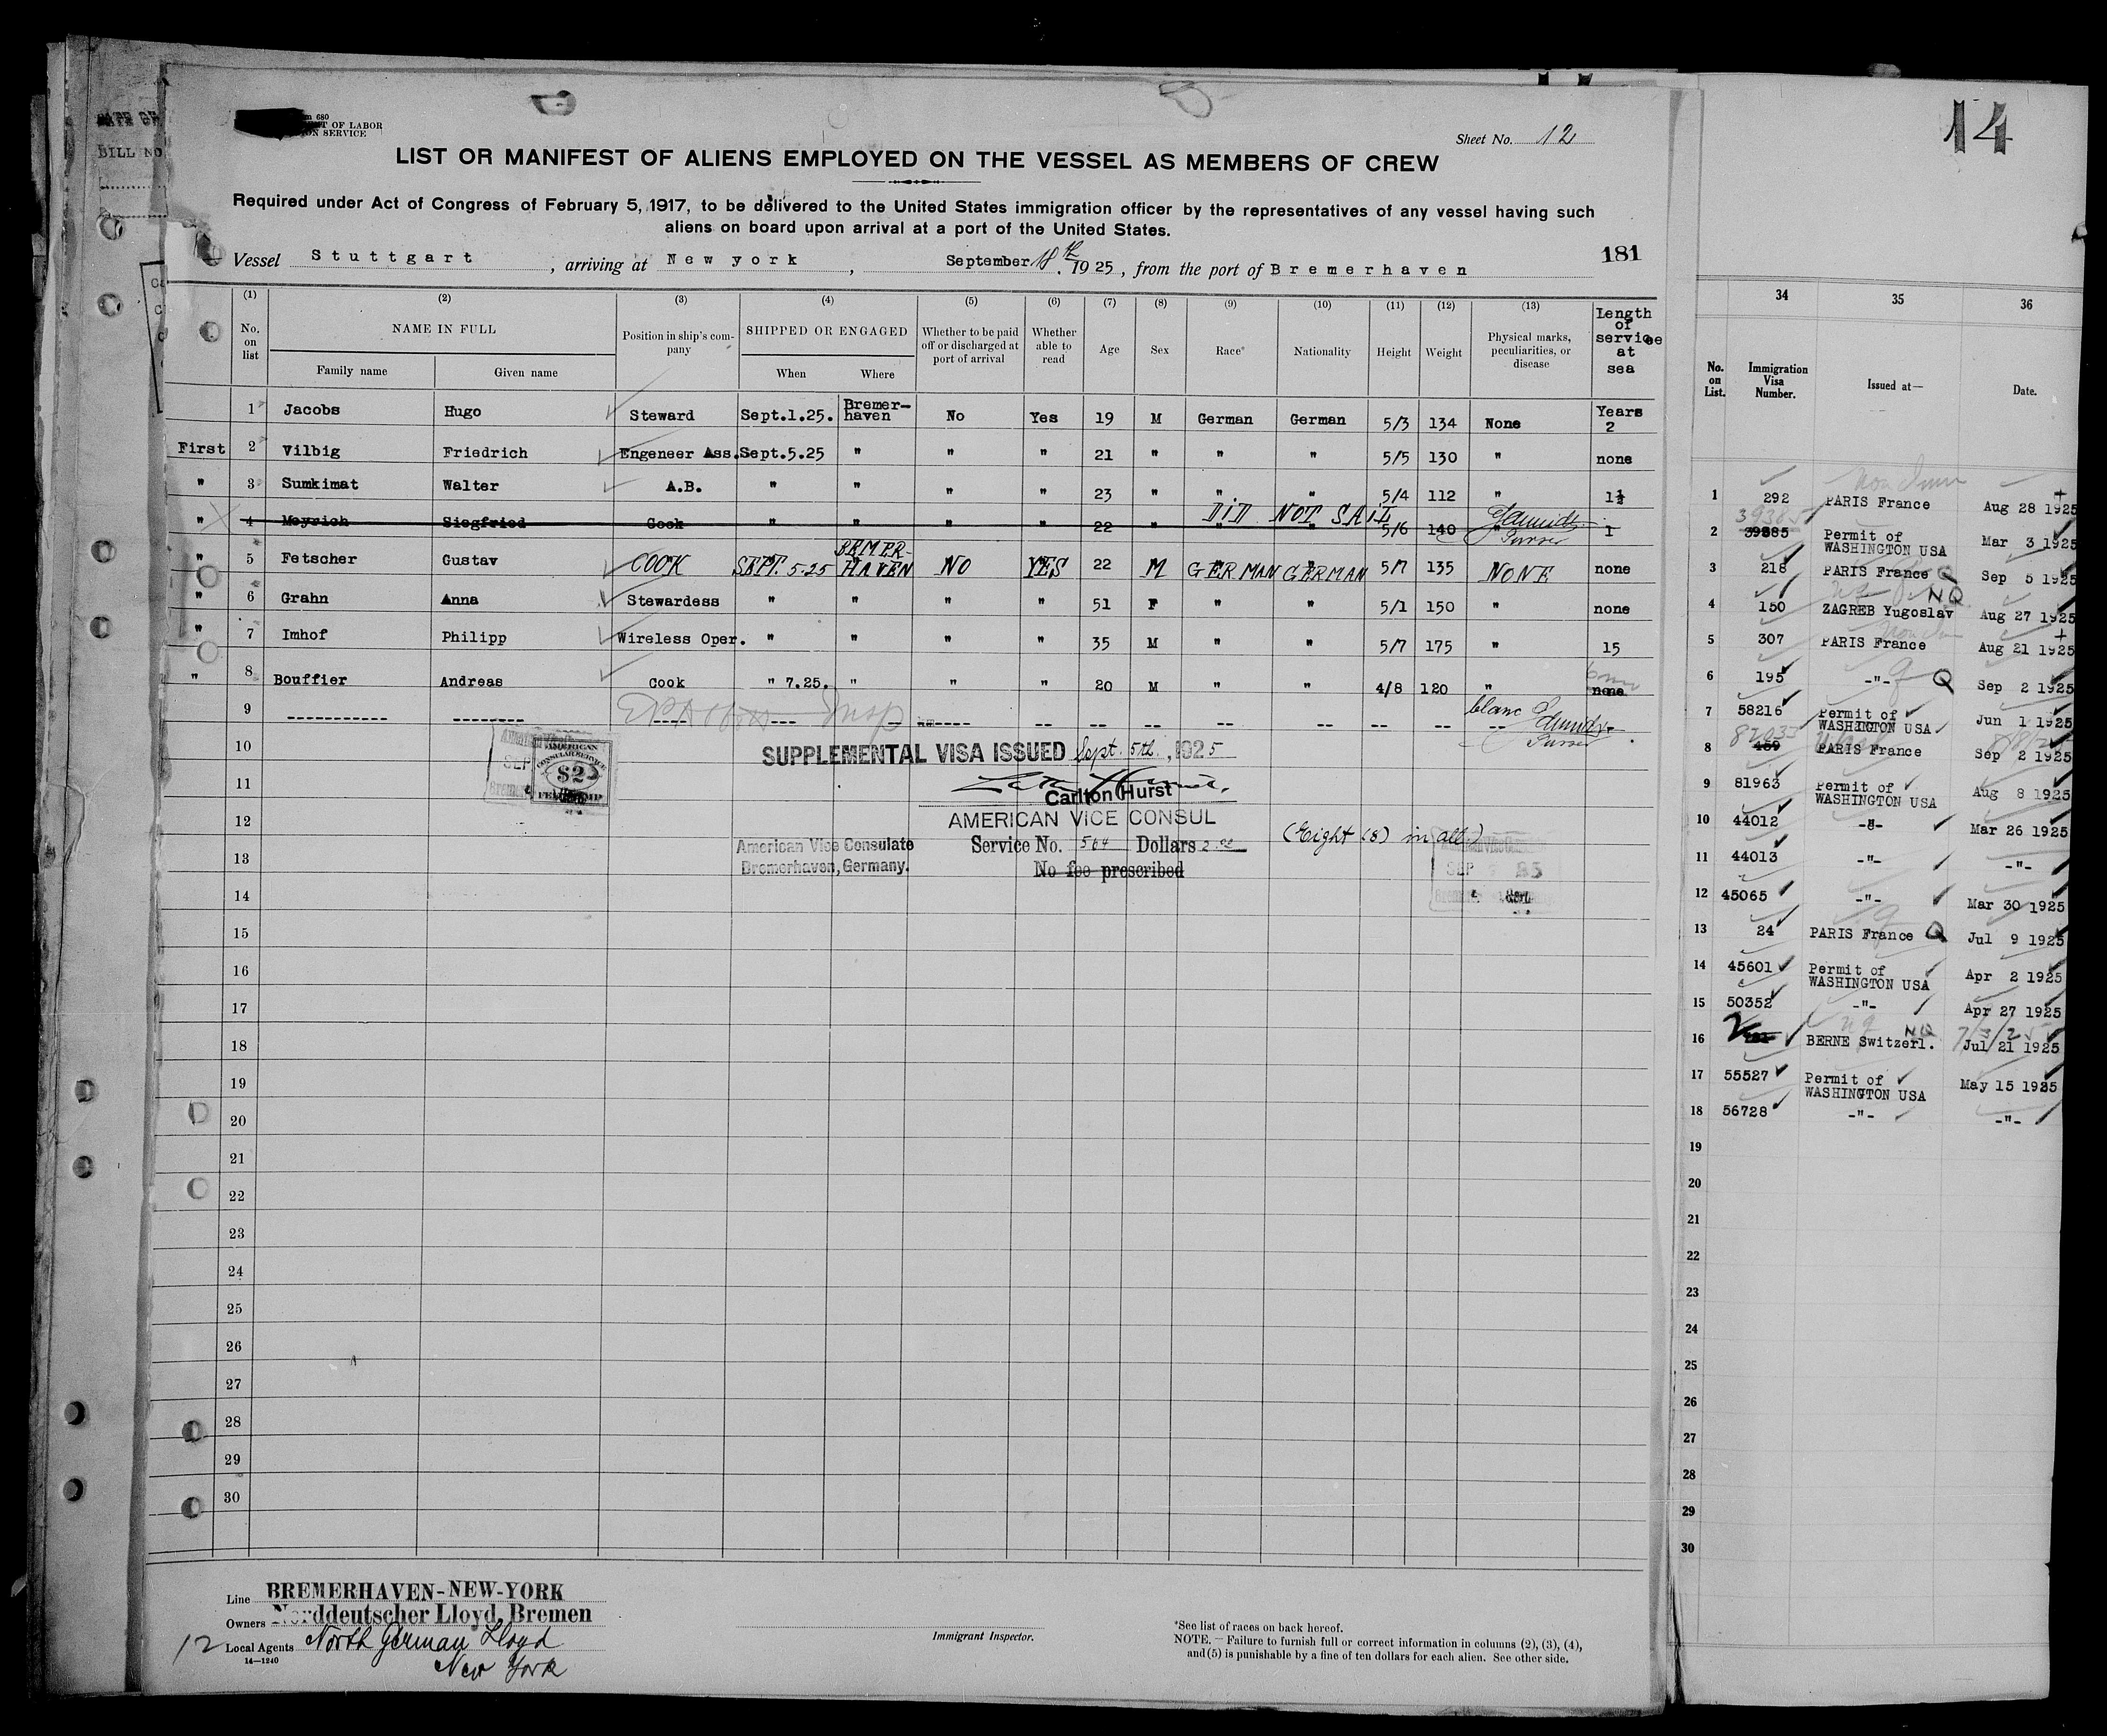 BILL NO
m 680
T OF LABOR
ON SERVICE
Sheet No. 12
LIST OR MANIFEST OF ALIENS EMPLOYED ON THE VESSEL AS MEMBERS OF CREW
Required under Act of Congress of February 5, 1917, to be delivered to the United States immigration officer by the representatives of any vessel having such
aliens on board upon arrival at a port of the United States.
181
Vessel Stuttgart, arriving at New york, September 18th 1925, from the port of Bremerhaven
(1) (2) (3) (4) (5) (6) (7) (8) (9) (10) (11) (12) (13)
No. on list NAME IN FULL Family name Given name Position in ship's company SHIPPED OR ENGAGED When Where Whether to be paid off or discharged at port of arrival Whether able to read Age Sex Race* Nationality Height Weight Physical marks, peculiarities, or disease Length of service at sea
1 Jacobs Hugo Steward Sept.1.25. Bremer-haven No Yes 19 M German German 5/3 134 None Years 2
First 2 Vilbig Friedrich Engeneer Ass. Sept.5.25 " " " 21 " " " 5/5 130 " none
" 3 Sumkimat Walter A.B. " " " " 23 " " " 5/4 112 " 1½
" 4 Meyrich Siegfried Cook " " " " 22 " " " 5/6 140 " 1
DID NOT SAIL Schmidt Purser
" 5 Fetscher Gustav COOK SEPT. 5-25 BEMER-HAVEN NO YES 22 M GERMAN GERMAN 5/7 135 NONE none
" 6 Grahn Anna Stewardess " " " " 51 F " " 5/1 150 " none
" 7 Imhof Philipp Wireless Oper. " " " " 35 M " " 5/7 175 " 15
" 8 Bouffier Andreas Cook " 7.25. " " " 20 M " " 4/8 120 " none
9 blanc Schmidt Purser
10
SUPPLEMENTAL VISA ISSUED Sept. 5th, 1925
AMERICAN CONSULAR SERVICE $2 FEE STAMP
11
Carlton Hurst
12
AMERICAN VICE CONSUL
American Vice Consulate
Bremerhaven, Germany.
Service No. 564 Dollars 2.00
(Eight (8) in all.)
13
No fee prescribed
14
15
16
17
18
19
20
21
22
23
24
25
26
27
28
29
30
Line BREMERHAVEN-NEW-YORK
Owners Norddeutscher Lloyd, Bremen
12 Local Agents North German Lloyd
New York
14—1240
Immigrant Inspector.
*See list of races on back hereof.
NOTE.—Failure to furnish full or correct information in columns (2), (3), (4),
and (5) is punishable by a fine of ten dollars for each alien. See other side.
14
34 35 36
No. on List. Immigration Visa Number. Issued at— Date.
1 292 PARIS France Aug 28 1925
2 39385 Permit of WASHINGTON USA Mar 3 1925
3 218 PARIS France Q Sep 5 1925
4 150 ZAGREB Yugoslav NQ Aug 27 1925
5 307 PARIS France Aug 21 1925
6 195 -"- Q Sep 2 1925
7 58216 Permit of WASHINGTON USA Jun 1 1925
8 459 PARIS France Sep 2 1925
9 81963 Permit of WASHINGTON USA Aug 8 1925
10 44012 -"- Mar 26 1925
11 44013 -"- -"-
12 45065 -"- Mar 30 1925
13 24 PARIS France Q Jul 9 1925
14 45601 Permit of WASHINGTON USA Apr 2 1925
15 50352 -"- Apr 27 1925
16 BERNE Switzerl. NQ Jul 21 1925
17 55527 Permit of WASHINGTON USA May 15 1925
18 56728 -"- -"-
19
20
21
22
23
24
25
26
27
28
29
30